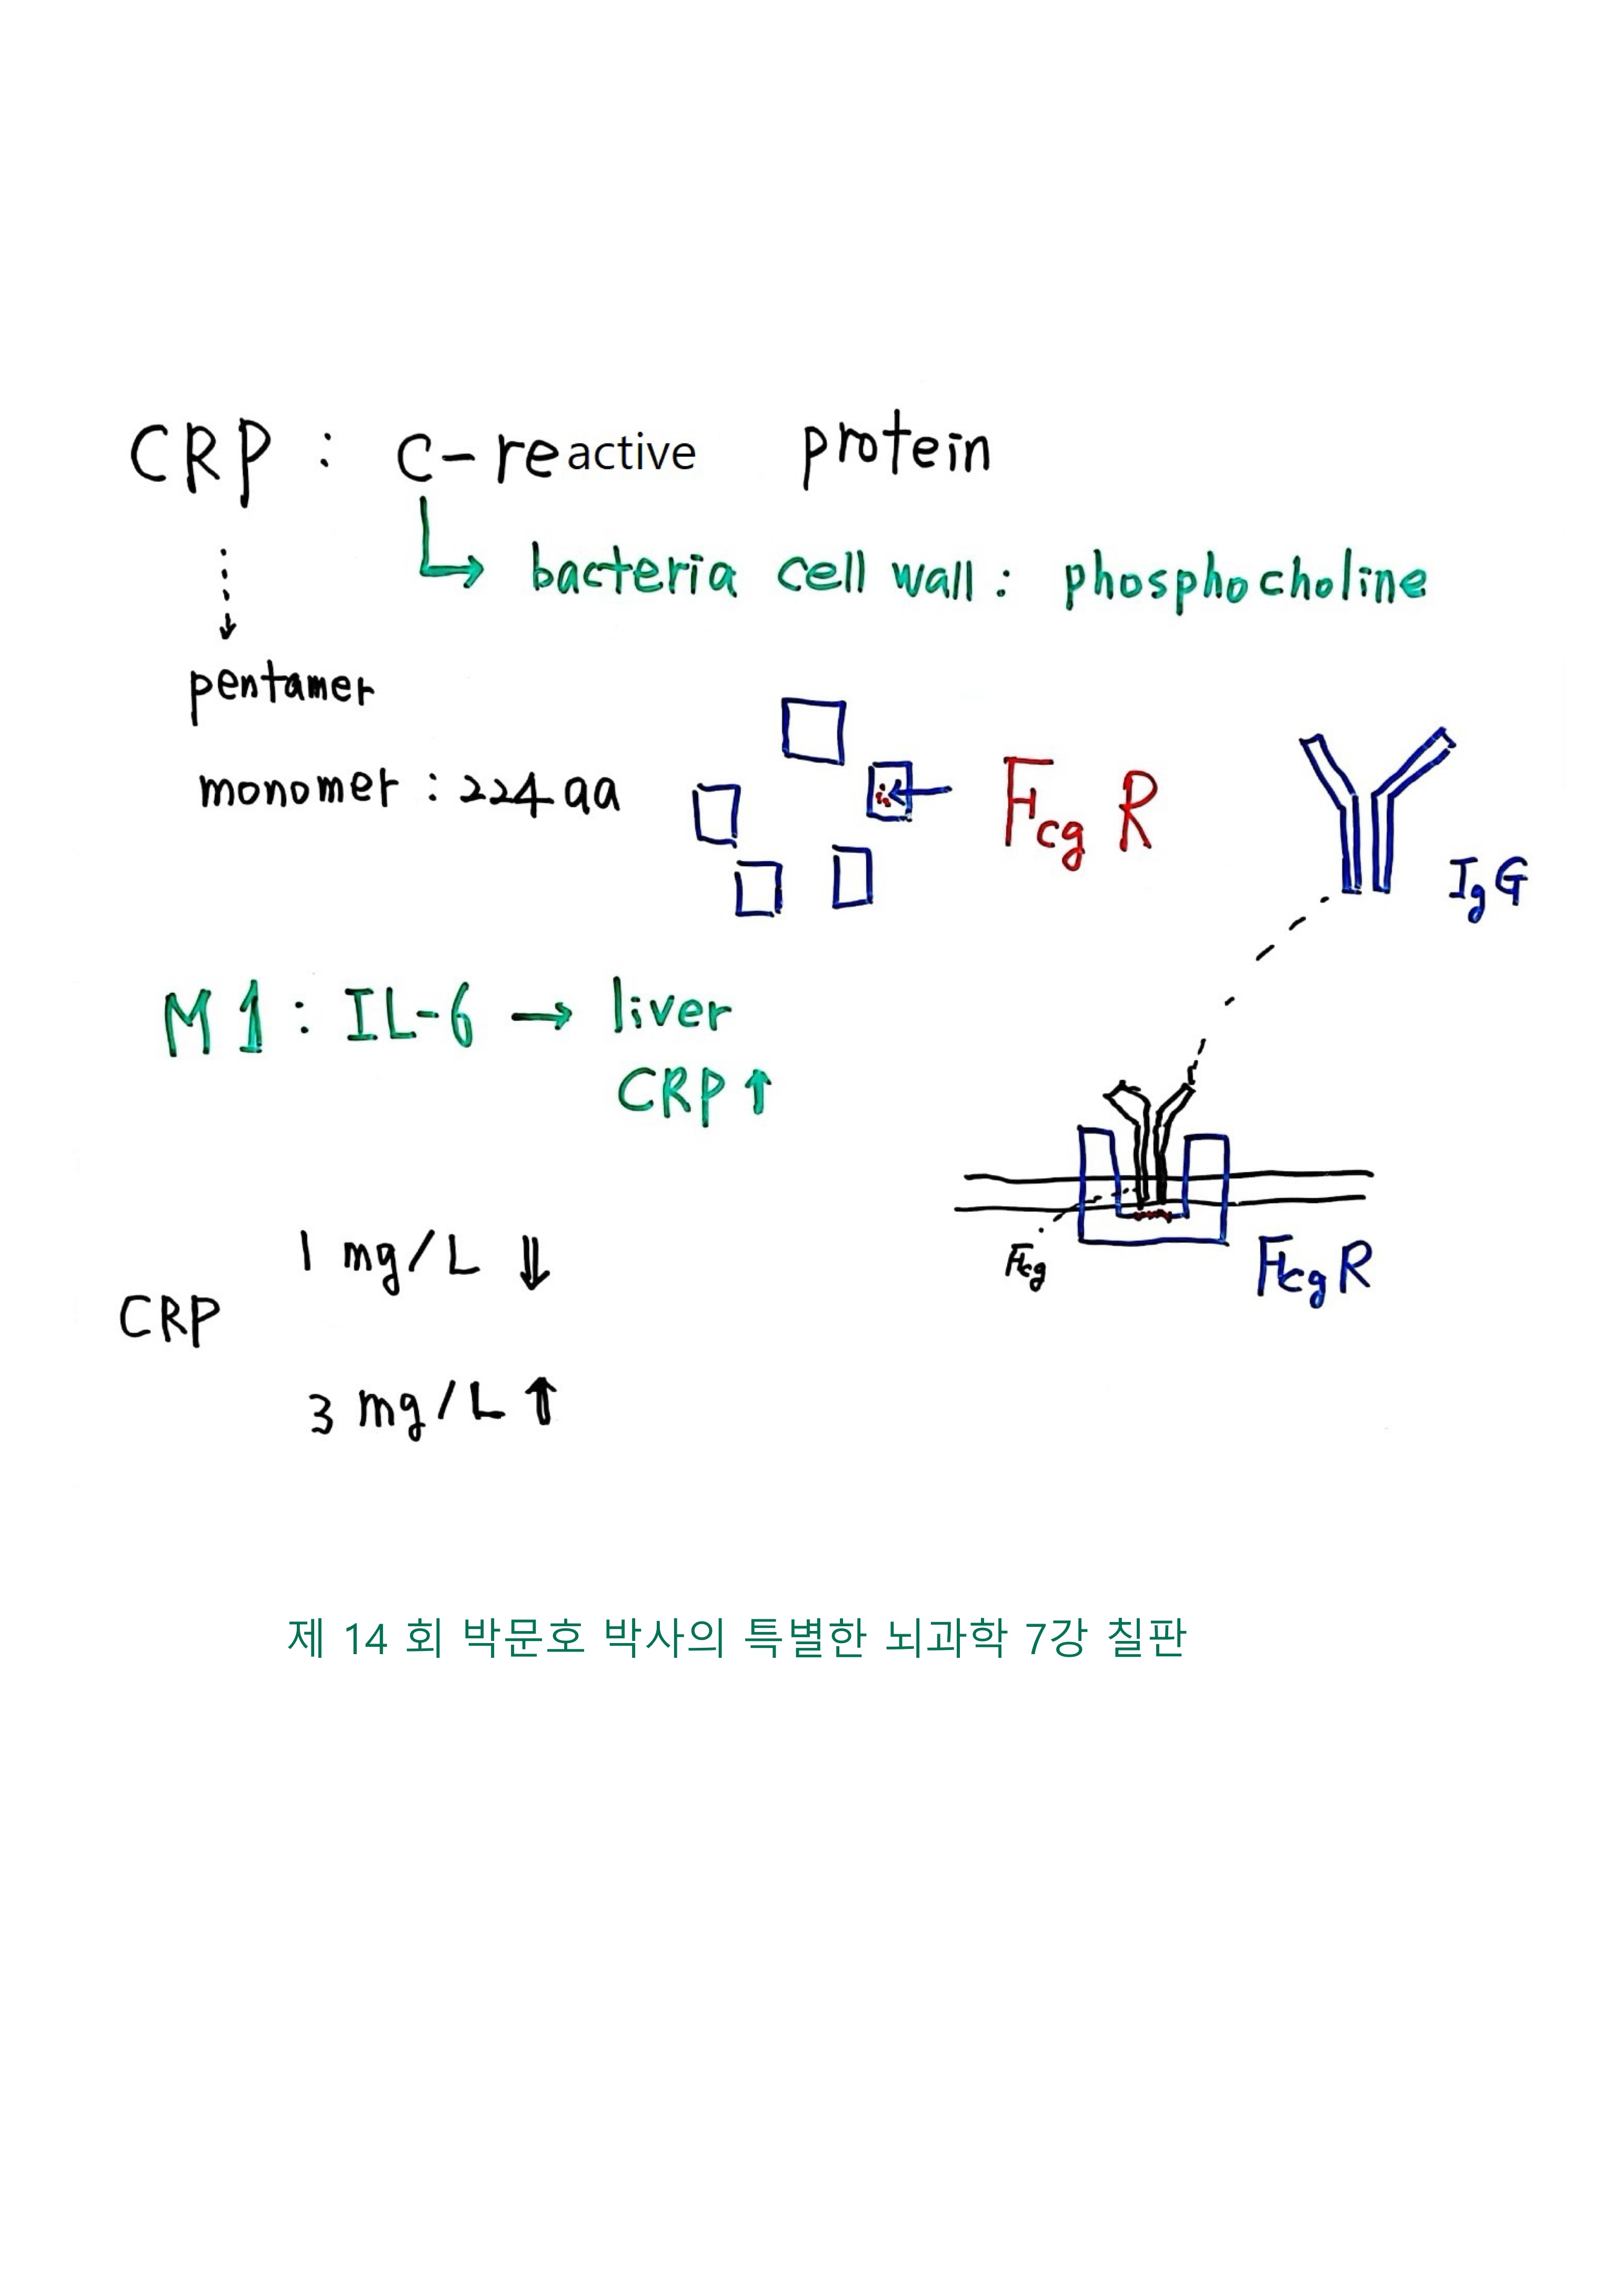 CRP : C-reactive protein
bacteria cell wall : phosphocholine
pentamer
monomer : 224 aa
Fcg R
IgG
M1 : IL-6 → liver
CRP ↑
1 mg/L ⇓
CRP
3 mg/L ⇑
Fcg
Fcg R
제 14 회 박문호 박사의 특별한 뇌과학 7강 칠판